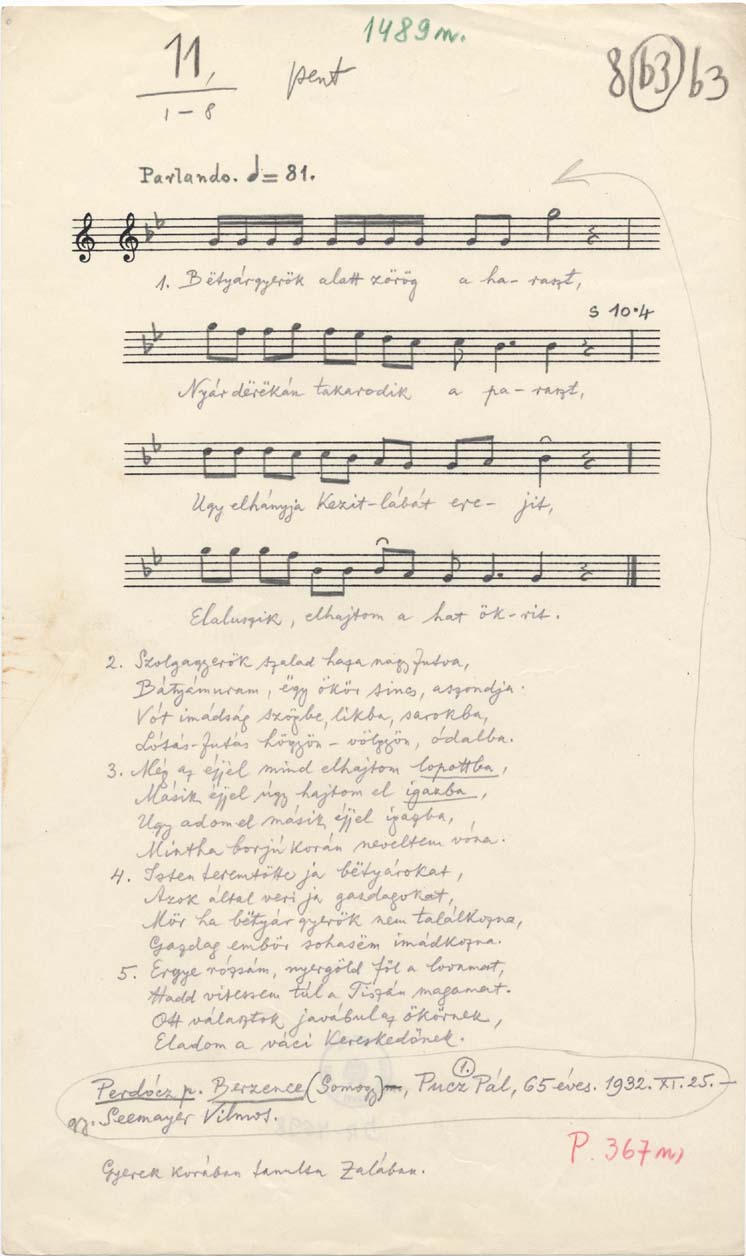 1489n.
11,
1-8
pent
8 b3 b3
Parlando. = 81.
1. Bëtyárgyerök alatt zörög a ha-raszt,
s 10.4
Nyár dërëkán takarodik a pa-raszt,
Ugy elhányja kezit-lábát ere-jit,
Elaluszik, elhajtom a hat ök-rit.
2. Szolgagyerök szalad haza nagy futva,
Bátyámuram, ëgy ökör sincs, aszondja.
Vót imádság szögbe, likba, sarokba,
Lótás-futás högyön-völgyön, ódalba.
3. Még az éjjel mind elhajtom lopottba,
Másik éjjel úgy hajtom el igazba,
Ugy adom el másik éjjel igazba,
Mintha borjú korán neveltem vóna.
4. Isten teremtötte ja bëtyárokat,
Azok által veri ja gazdagokat,
Mör ha bëtyár gyerök nem találkozna,
Gazdag embör sohasëm imádkozna.
5. Ergye rózsám, nyergöld föl a lovamat,
Hadd vitessem túl a Tiszán magamat.
Ott választok javábul az ökörnek,
Eladom a váci kereskedőnek.
Perdócz p. Berzence (Somogy), Pucz Pál, 65 éves. 1932. XI. 25. -
1.
gy. Seemayer Vilmos.
P. 367 m
Gyerek korában tanulta Zalában.